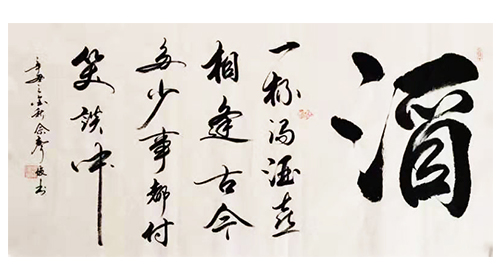 酒
一杯浊酒喜
相逢古今
多少事都付
笑谈中
辛丑之金秋 书